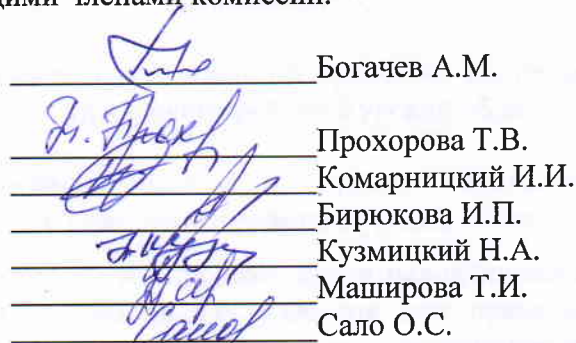 щими членами комиссии:
Богачев А.М.
Прохорова Т.В.
Комарницкий И.И.
Бирюкова И.П.
Кузмицкий Н.А.
Маширова Т.И.
Сало О.С.